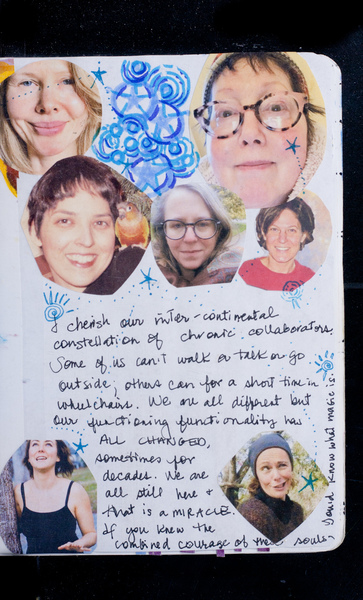 I cherish our inter-continental
constellation of chronic collaborators.
Some of us can't walk or talk or go
outside; others can for a short time in
wheelchairs. We are all different but
our functioning functionality has
ALL CHANGED,
sometimes for
decades. We are
all still here &
that is a MIRACLE.
If you knew the
combined courage of these souls,
you'd know what magic is.